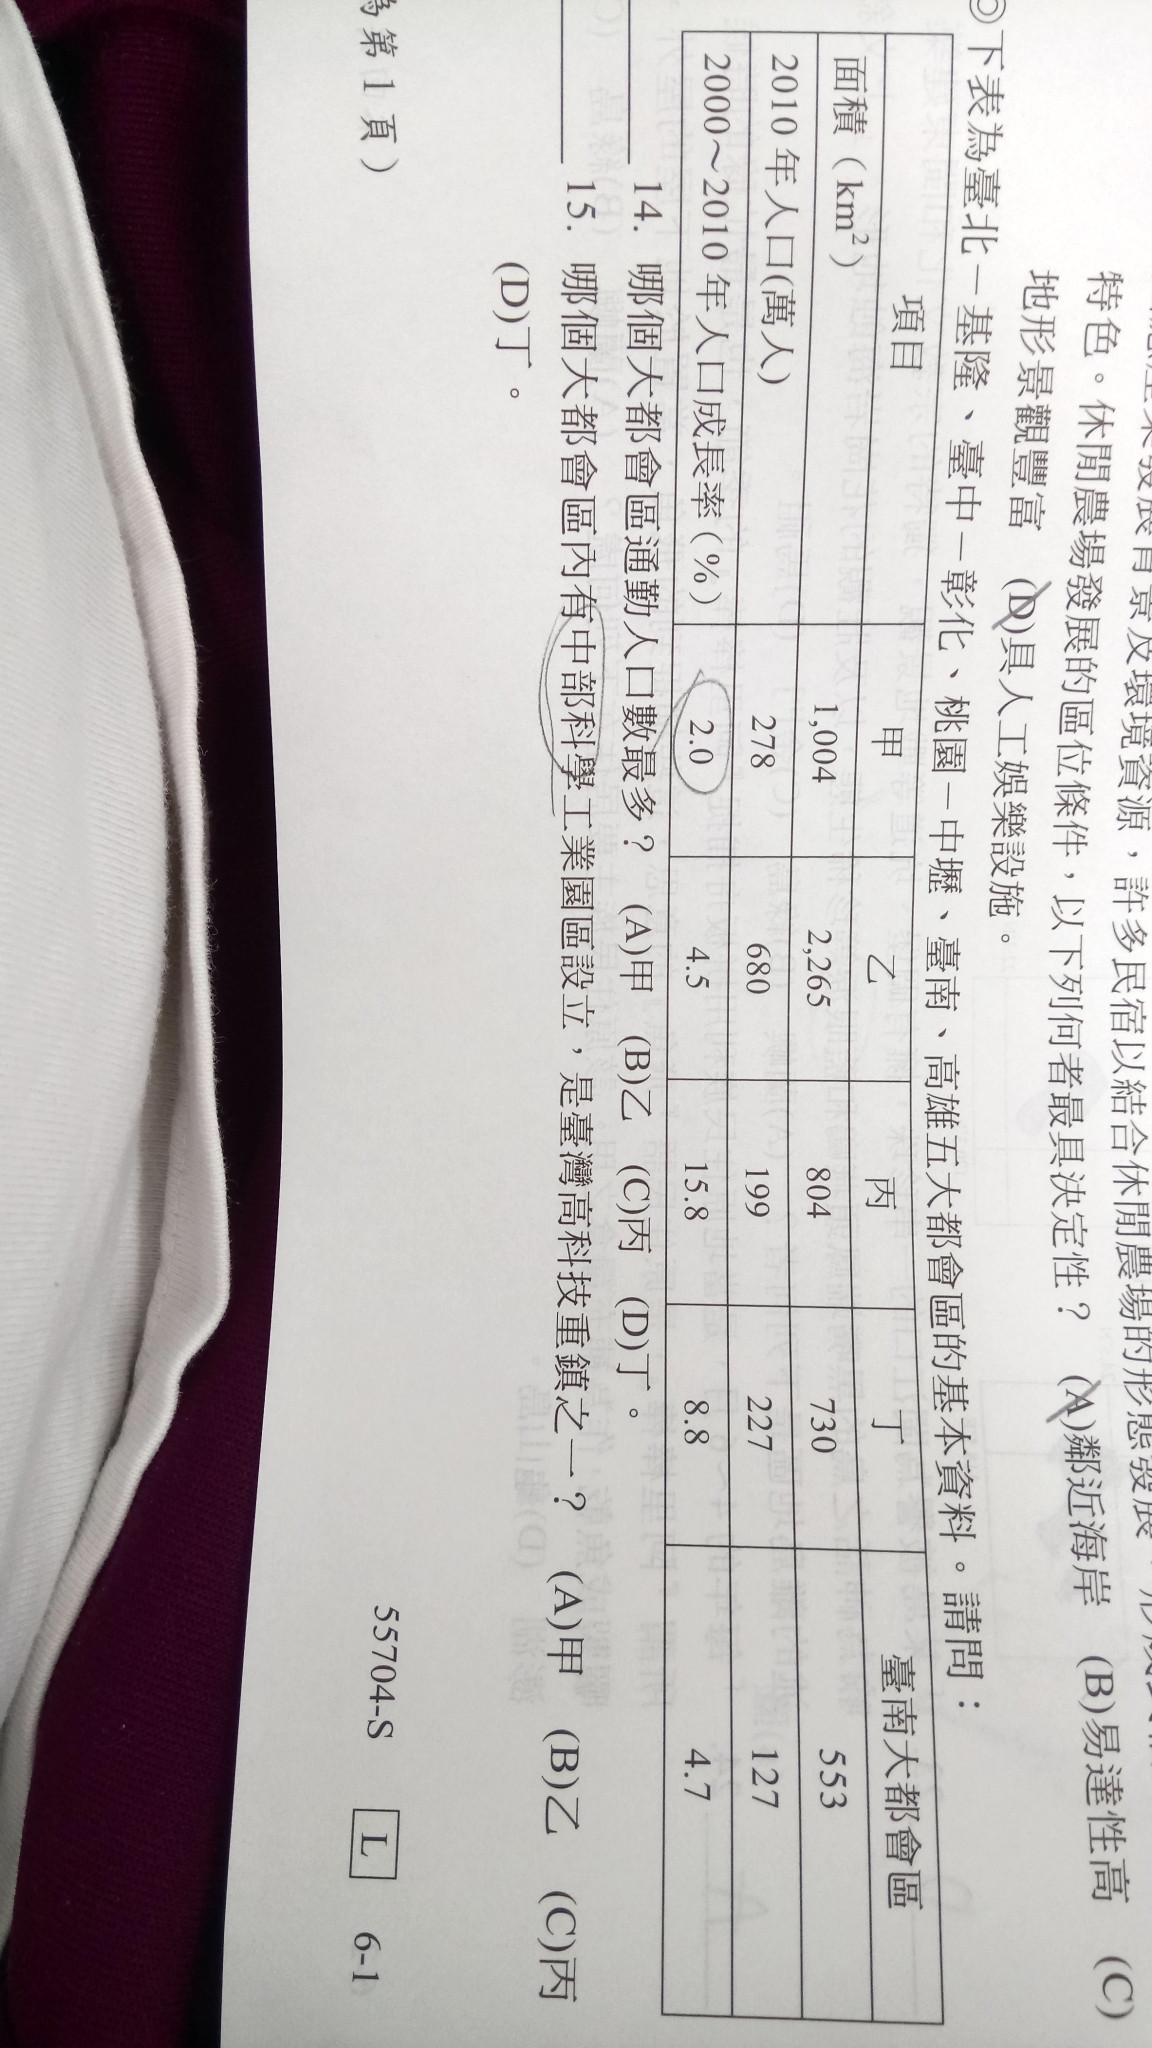 特色。休閒農場發展的區位條件,以下列何者最具決定性? (A)鄰近海岸 (B)易達性高 (C)
地形景觀豐富 (D)具人工娛樂設施。
◎下表為臺北-基隆、臺中-彰化、桃園-中壢、臺南、高雄五大都會區的基本資料。請問:
項目 甲 乙 丙 丁 臺南大都會區
面積(km²) 1,004 2,265 804 730 553
2010年人口(萬人) 278 680 199 227 127
2000~2010年人口成長率(%) 2.0 4.5 15.8 8.8 4.7
14. 哪個大都會區通勤人口數最多? (A)甲 (B)乙 (C)丙 (D)丁。
15. 哪個大都會區內有中部科學工業園區設立,是臺灣高科技重鎮之一? (A)甲 (B)乙 (C)丙
(D)丁。
第1頁) 55704-S L 6-1